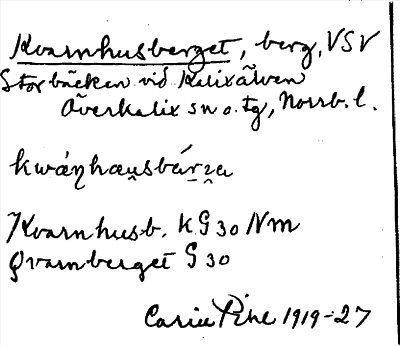 Kvarnhusberget, berg, VSV
Storbäcken vid Kalixälven
Överkalix sn o. tg, Norrb. l.
kwáŋhæu̯sbár̯ʒa
Kvarnhusb. KG 30 Nm
Qvarnberget G 30
Carin Pihl 1919-27